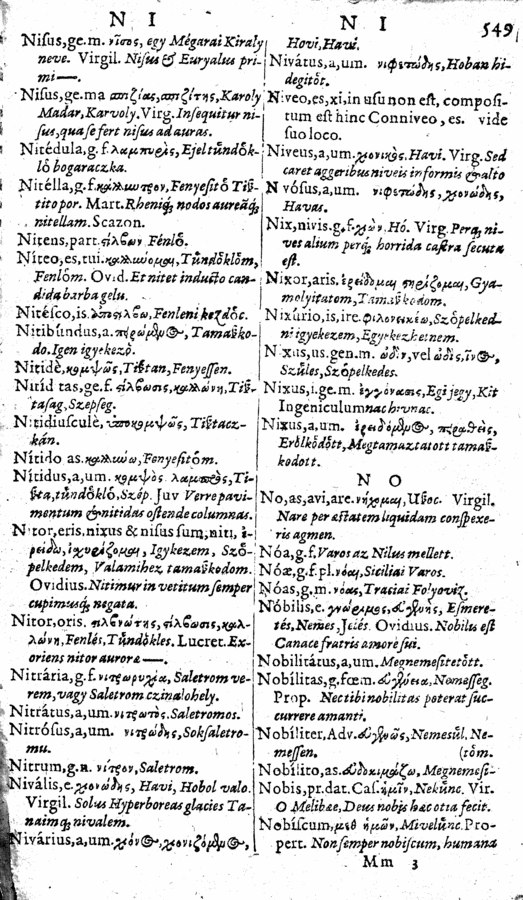 N I
N I 549
Nisus, ge. m. νῖσος, egy Mégarai Kiraly
neve. Virgil. Nisus & Euryalus pri-
mi —.
Nisus, ge. ma Karoly
Madar, Karvoly. Virg. Insequitur ni-
sus, qua se fert nisus ad auras.
Nitédula, g. f. λαμπυρὶς, Ejel tűndők-
lő bogaraczka.
Nitélla, g. f. Fenyesitő Tiſ-
tito por. Mart. Rheniq; nodos aureāq;
nitellam. Scazon.
Nitens, part. ςίλβων Fénlő.
Níteo, es, tui. Tűndőklőm,
Fenlőm. Ovid. Et nitet inducto can-
dida barba gelu.
Nitésco, is. Fenleni kezdőc.
Nitibúndus, a. Tamaſko-
do. Igen igyekező.
Nitidè, κομψῶς, Tiſtan, Fenyessen.
Nitíd tas, ge. f. ςίλβωσις, Tiſ-
tasag, Szepseg.
Nitidiusculè, ὑποκομψῶς, Tiſtacz-
kán.
Nítido as. Fenyesitőm.
Nítidus, a, um. κομψὸς λαμπρὸς, Ti-
ſta, tűndőklő, Szép. Juv Verre pavi-
mentum & nitidas ostende columnas.
Nitor, eris. nixus & nisus sum, niti,
Igykezem, Szŏ-
pelkedem, Valamihez tamaſkodom.
Ovidius. Nitimur in vetitum semper
cupimusq; negata.
Nitor, oris. ςίλβωσις,
Fenlés, Tűndőkles. Lucret. Ex-
oriens nitor auroræ —.
Nitrária, g. f. Saletrom ve-
rem, vagy Saletrom czinalo hely.
Nitrátus, a, um. νιτρωτὸς. Saletromos.
Nitrósus, a, um. νιτρώδης, Sok saletro-
mu.
Nitrum, g. n. νίτρον, Saletrom.
Nivális, e. χιονώδης, Havi, Hobol valo.
Virgil. Solus Hyperboreas glacies Ta-
naimq; nivalem.
Nivárius, a, um.
Hovi, Havi.
Nivátus, a, um. νιφετώδης, Hoban hi-
degitőt.
Niveo, es, xi, in usu non est, composi-
tum est hinc Conniveo, es. vide
suo loco.
Níveus, a, um. χιονικὸς. Havi. Virg. Sed
caret aggeribus niveis informis & alto
Nivósus, a, um. νιφετώδης, χιονώδης,
Havas.
Nix, nivis. g. f. χιὼν. Hó. Virg. Perq; ni-
ves alium perq; horrida castra secuta
est.
Nixor, aris. ἐρείδομαι Gya-
molyitatom, Tamaſkodom.
Nixúrio, is, ire. φιλονεικέω, Szőpelked-
ni igyekezem, Egyekezhetnem.
Nixus, us. gen. m. ὠδὶν, vel
Szűles, Szőpelkedes.
Nixus, i. ge. m. ἐγγόνασις, Egi jegy, Kit
Ingeniculumnac hivnac.
Nixus, a, um.
Erőlkődőtt, Megtamaztatott tamaſ-
kodott.
N O
No, as, avi, are. νήχομαι, Uſoc. Virgil.
Nare per æstatem liquidam conspexe-
ris agmen.
Nóa, g. f. Varos az Nilus mellett.
Nóæ, g. f. pl. νόαι, Siciliai Varos.
Nóas, g. m. νόας, Traciai Folyoviz.
Nóbilis, e. γνώριμος, Esmere-
tés, Nemes, Jelés. Ovidius. Nobilis est
Canace fratris amore sui.
Nobilitátus, a, um. Megnemesitetőtt.
Nobílitas, g. fœm. Nemesseg.
Prop. Nec tibi nobilitas poterat suc-
currere amanti.
Nobíliter, Adv. Nemesűl, Ne-
messen. (rőm.
Nobílito, as. Megnemesi-
Nobis, pr. dat. Cas. ἡμῖν, Nekűnc. Vir.
O Melibæe, Deus nobis hæc otia fecit.
Nobíscum, μεθ ἡμῶν, Mivelűnc. Pro-
pert. Non semper nobiscum, humana
Mm 3